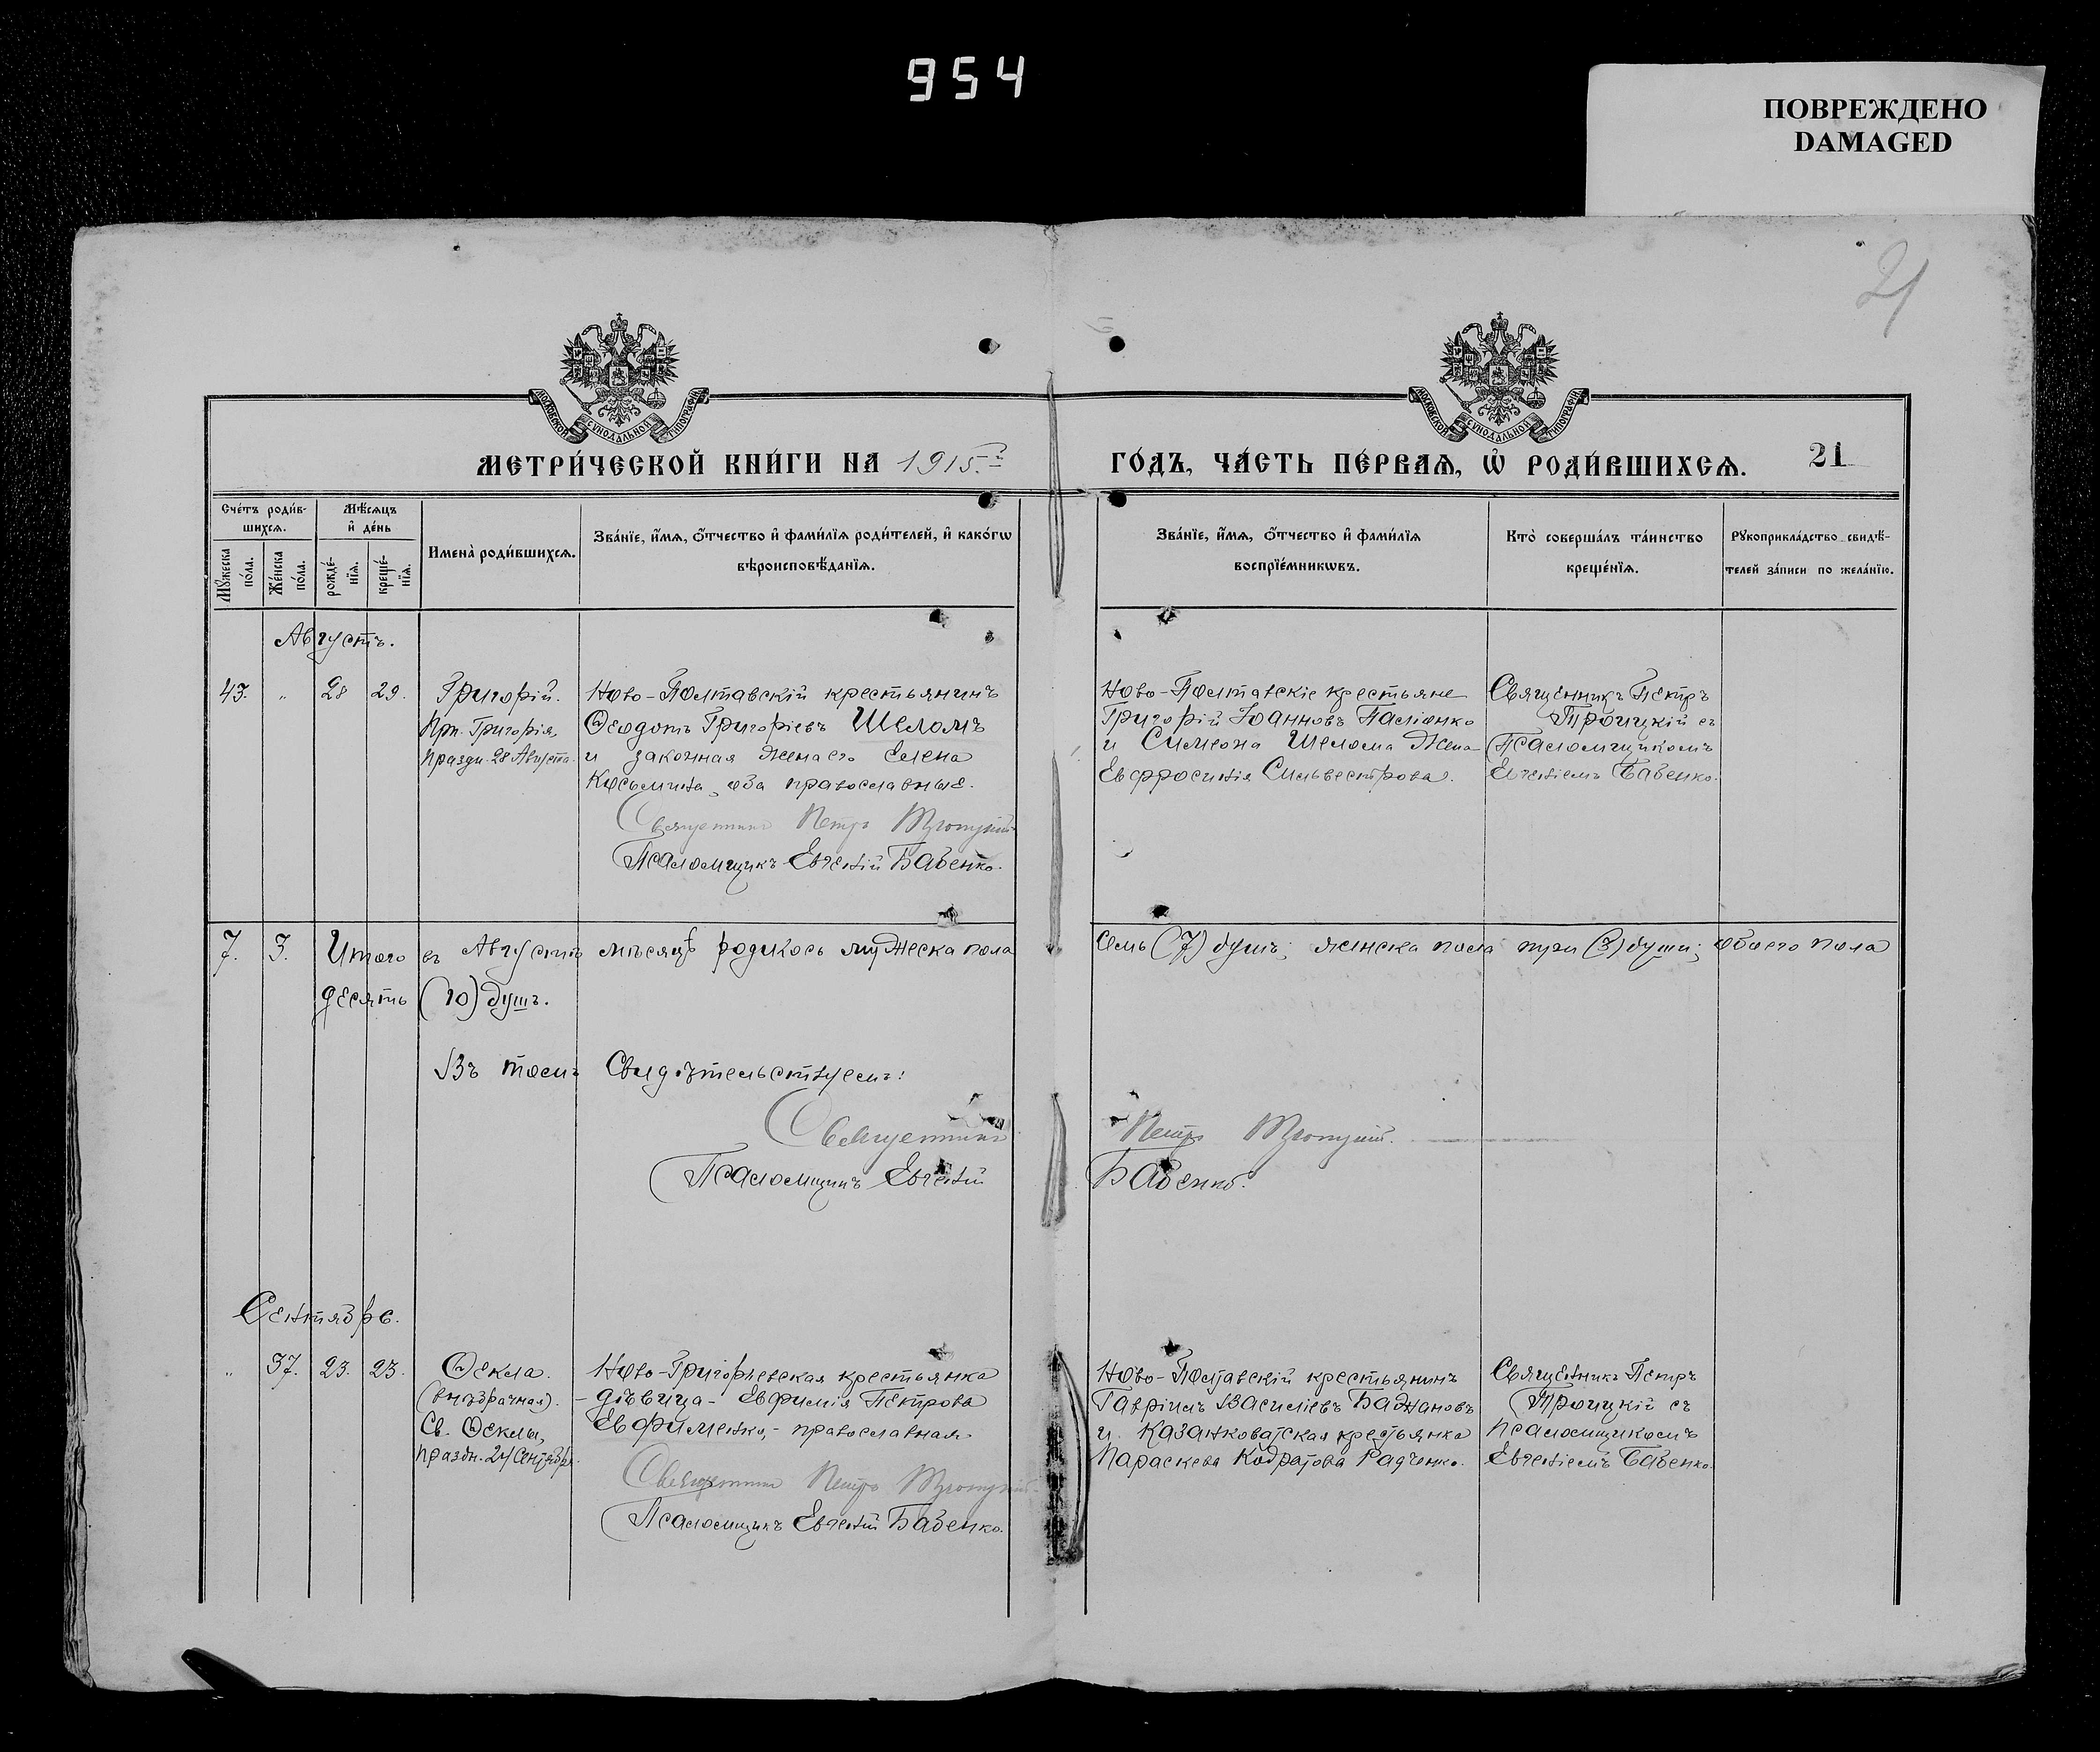 954
ПОВРЕЖДЕНО
DAMAGED
21
МОСКОВСКОЙ СѴНОДАЛЬНОЙ ТИПОГРАФІИ
МОСКОВСКОЙ СѴНОДАЛЬНОЙ ТИПОГРАФІИ
МЕТРИ́ЧЕСКОЙ КНИ́ГИ НА 1915 г.
ГО́ДЪ, ЧА́СТЬ ПЕ́РВАѦ, Ѡ РОДИ́ВШИХСѦ. 21
Сче́тъ роди́в-
шихсѧ.
Мꙋжеска
по́ла.
Же́нска
по́ла.
Мѣ́сѧцъ
и҆ де́нь
рожде́-
нїѧ.
креще́-
нїѧ.
Имена̀ роди́вшихсѧ.
Зва́нїе, и҆́мѧ, ѻ҆́тчество и҆ фами́лїѧ роди́телей, и҆ како́гѡ
вѣроисповѣ́данїѧ.
Зва́нїе, и҆́мѧ, ѻ҆́тчество и҆ фами́лїѧ
воспрїе́мникѡвъ.
Кто̀ соверша́лъ та́инство
креще́нїѧ.
Рꙋкоприкла́дство свидѣ́-
телей за́писи по жела́нїю.
Августъ.
43. " 28 29.
Григорій.
Прп. Григорія,
праздн. 28 Августа.
Ново-Полтавскій крестьянинъ
Ѳеодотъ Григоріевъ Шеломъ
и законная жена его Елена
Косьмина, оба православные.
Священникъ Петръ Троицкій
Псаломщикъ Евгеній Бабенко.
Ново-Полтавскіе крестьяне
Григорій Іоанновъ
и Симеона Шелома жена
Евфросинія Сильвестрова.
Священникъ Петръ
Троицкій съ
Псаломщикомъ
Евгеніемъ Бабенко.
7. 3. Итого въ Августѣ мѣсяцѣ родилось мужеска пола
семь (7) душъ; женска пола три (3) души; обоего пола
десять (10) душъ.
Въ томъ Свидѣтельствуемъ:
Священникъ Петръ Троицкій.
Псаломщикъ Евгеній Бабенко.
Сентябрь.
" 37. 23. 23.
Ѳекла.
(внѣбрачная).
Св. Ѳеклы,
праздн. 24 Сентябр.
Ново-Григорьевская крестьянка
- дѣвица - Евфимія Петрова
Евфименко, - православная.
Священникъ Петръ Троицкій
Псаломщикъ Евгеній Бабенко.
Ново-Полтавскій крестьянинъ
Гавріилъ Василіевъ Бажановъ
и Казанковатская крестьянка
Параскева Кодратова Радченко.
Священникъ Петръ
Троицкій съ
псаломщикомъ
Евгеніемъ Бабенко.